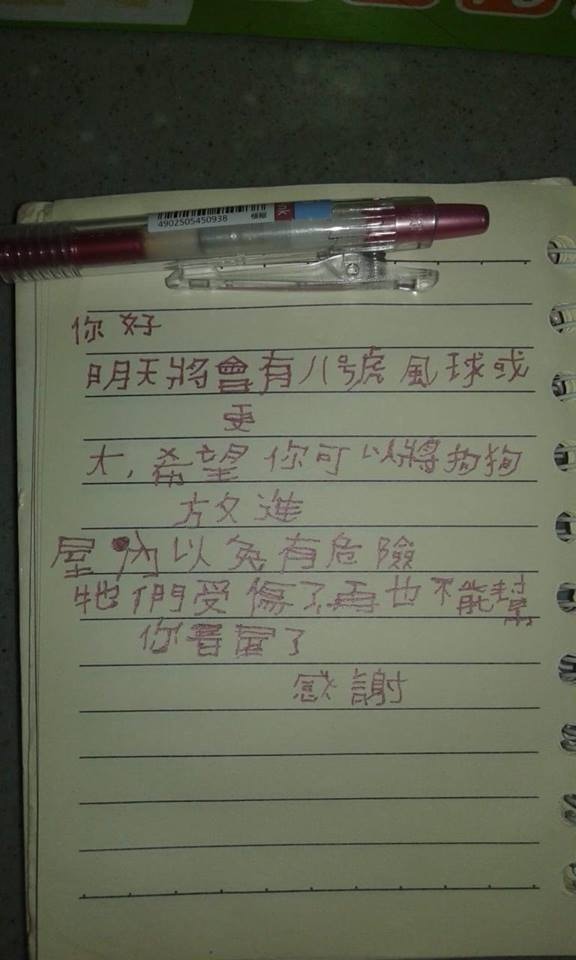 4902505450938
你好
明天將會有八號風球或
更
大,希望你可以將狗狗
放進
屋內以免有危險
牠們受傷了再也不能幫
你看屋了
感謝